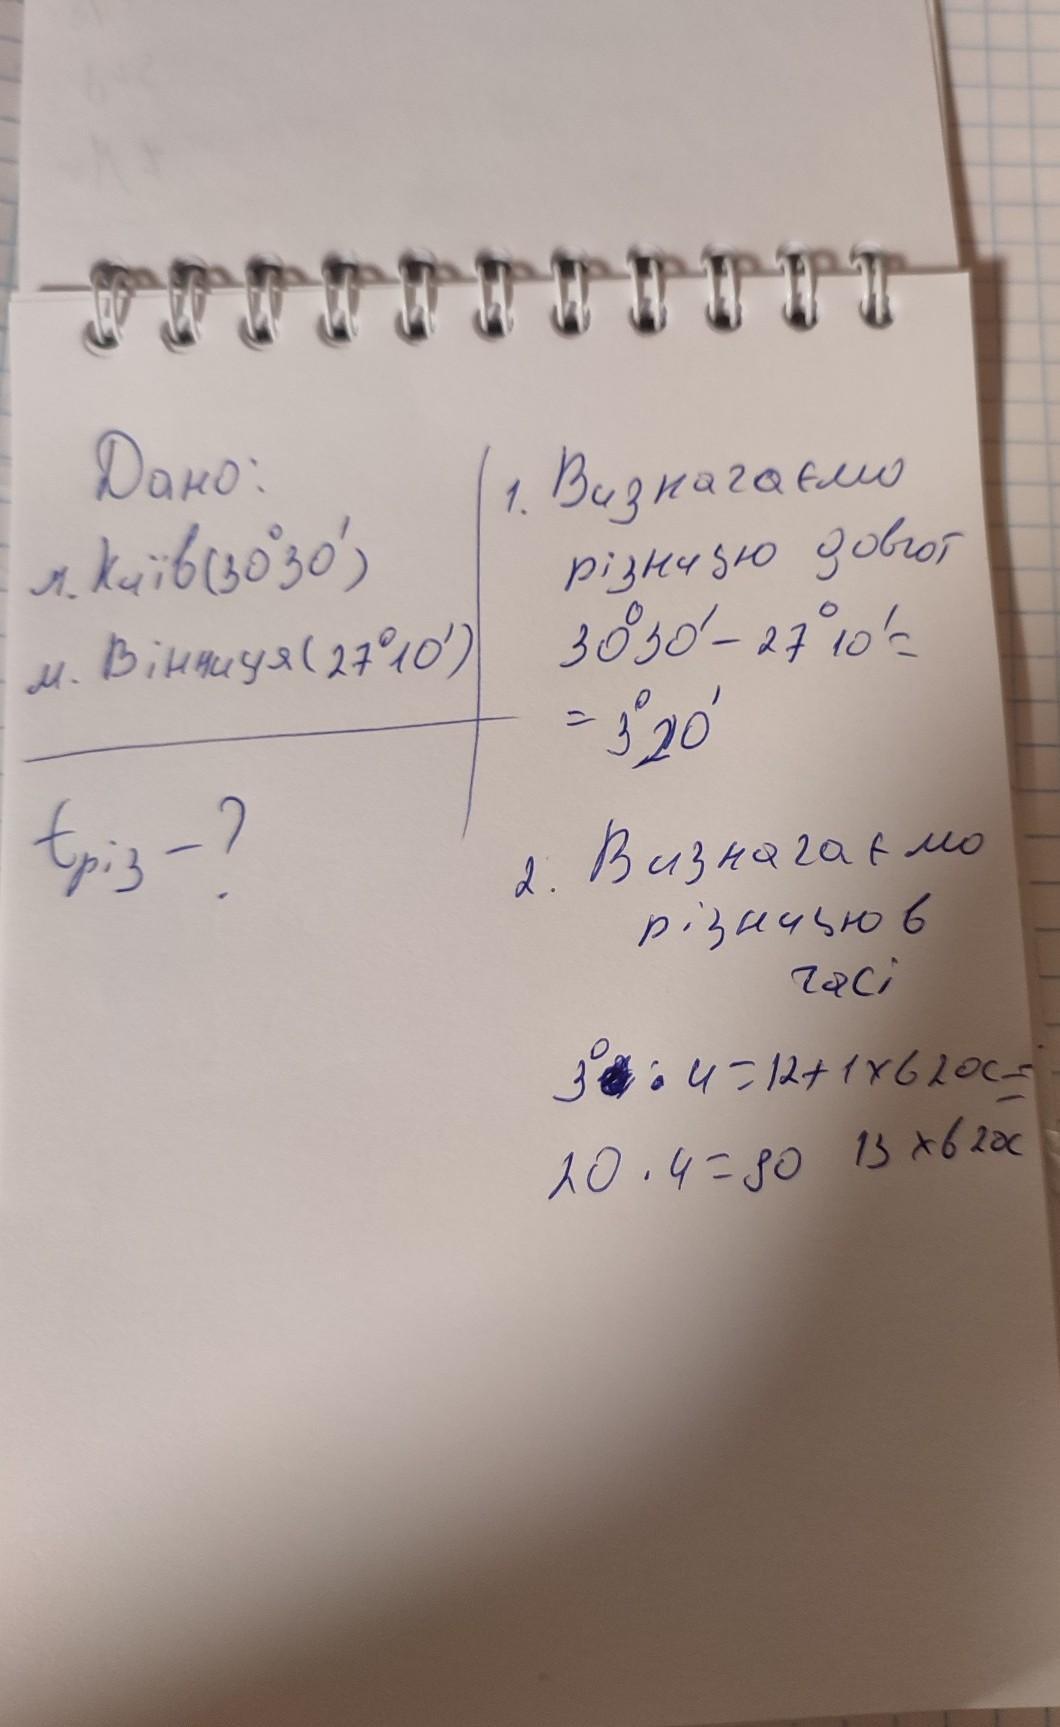 Дано:
м. Київ (30°30')
м. Вінниця (27°10')
tріз - ?
1. Визначаємо
різницю довгот
30°30' - 27°10' =
= 3°20'
2. Визначаємо
різницю в
часі
3° · 4 = 12 + 1 хв 20с =
20 · 4 = 80 13 хв 20с